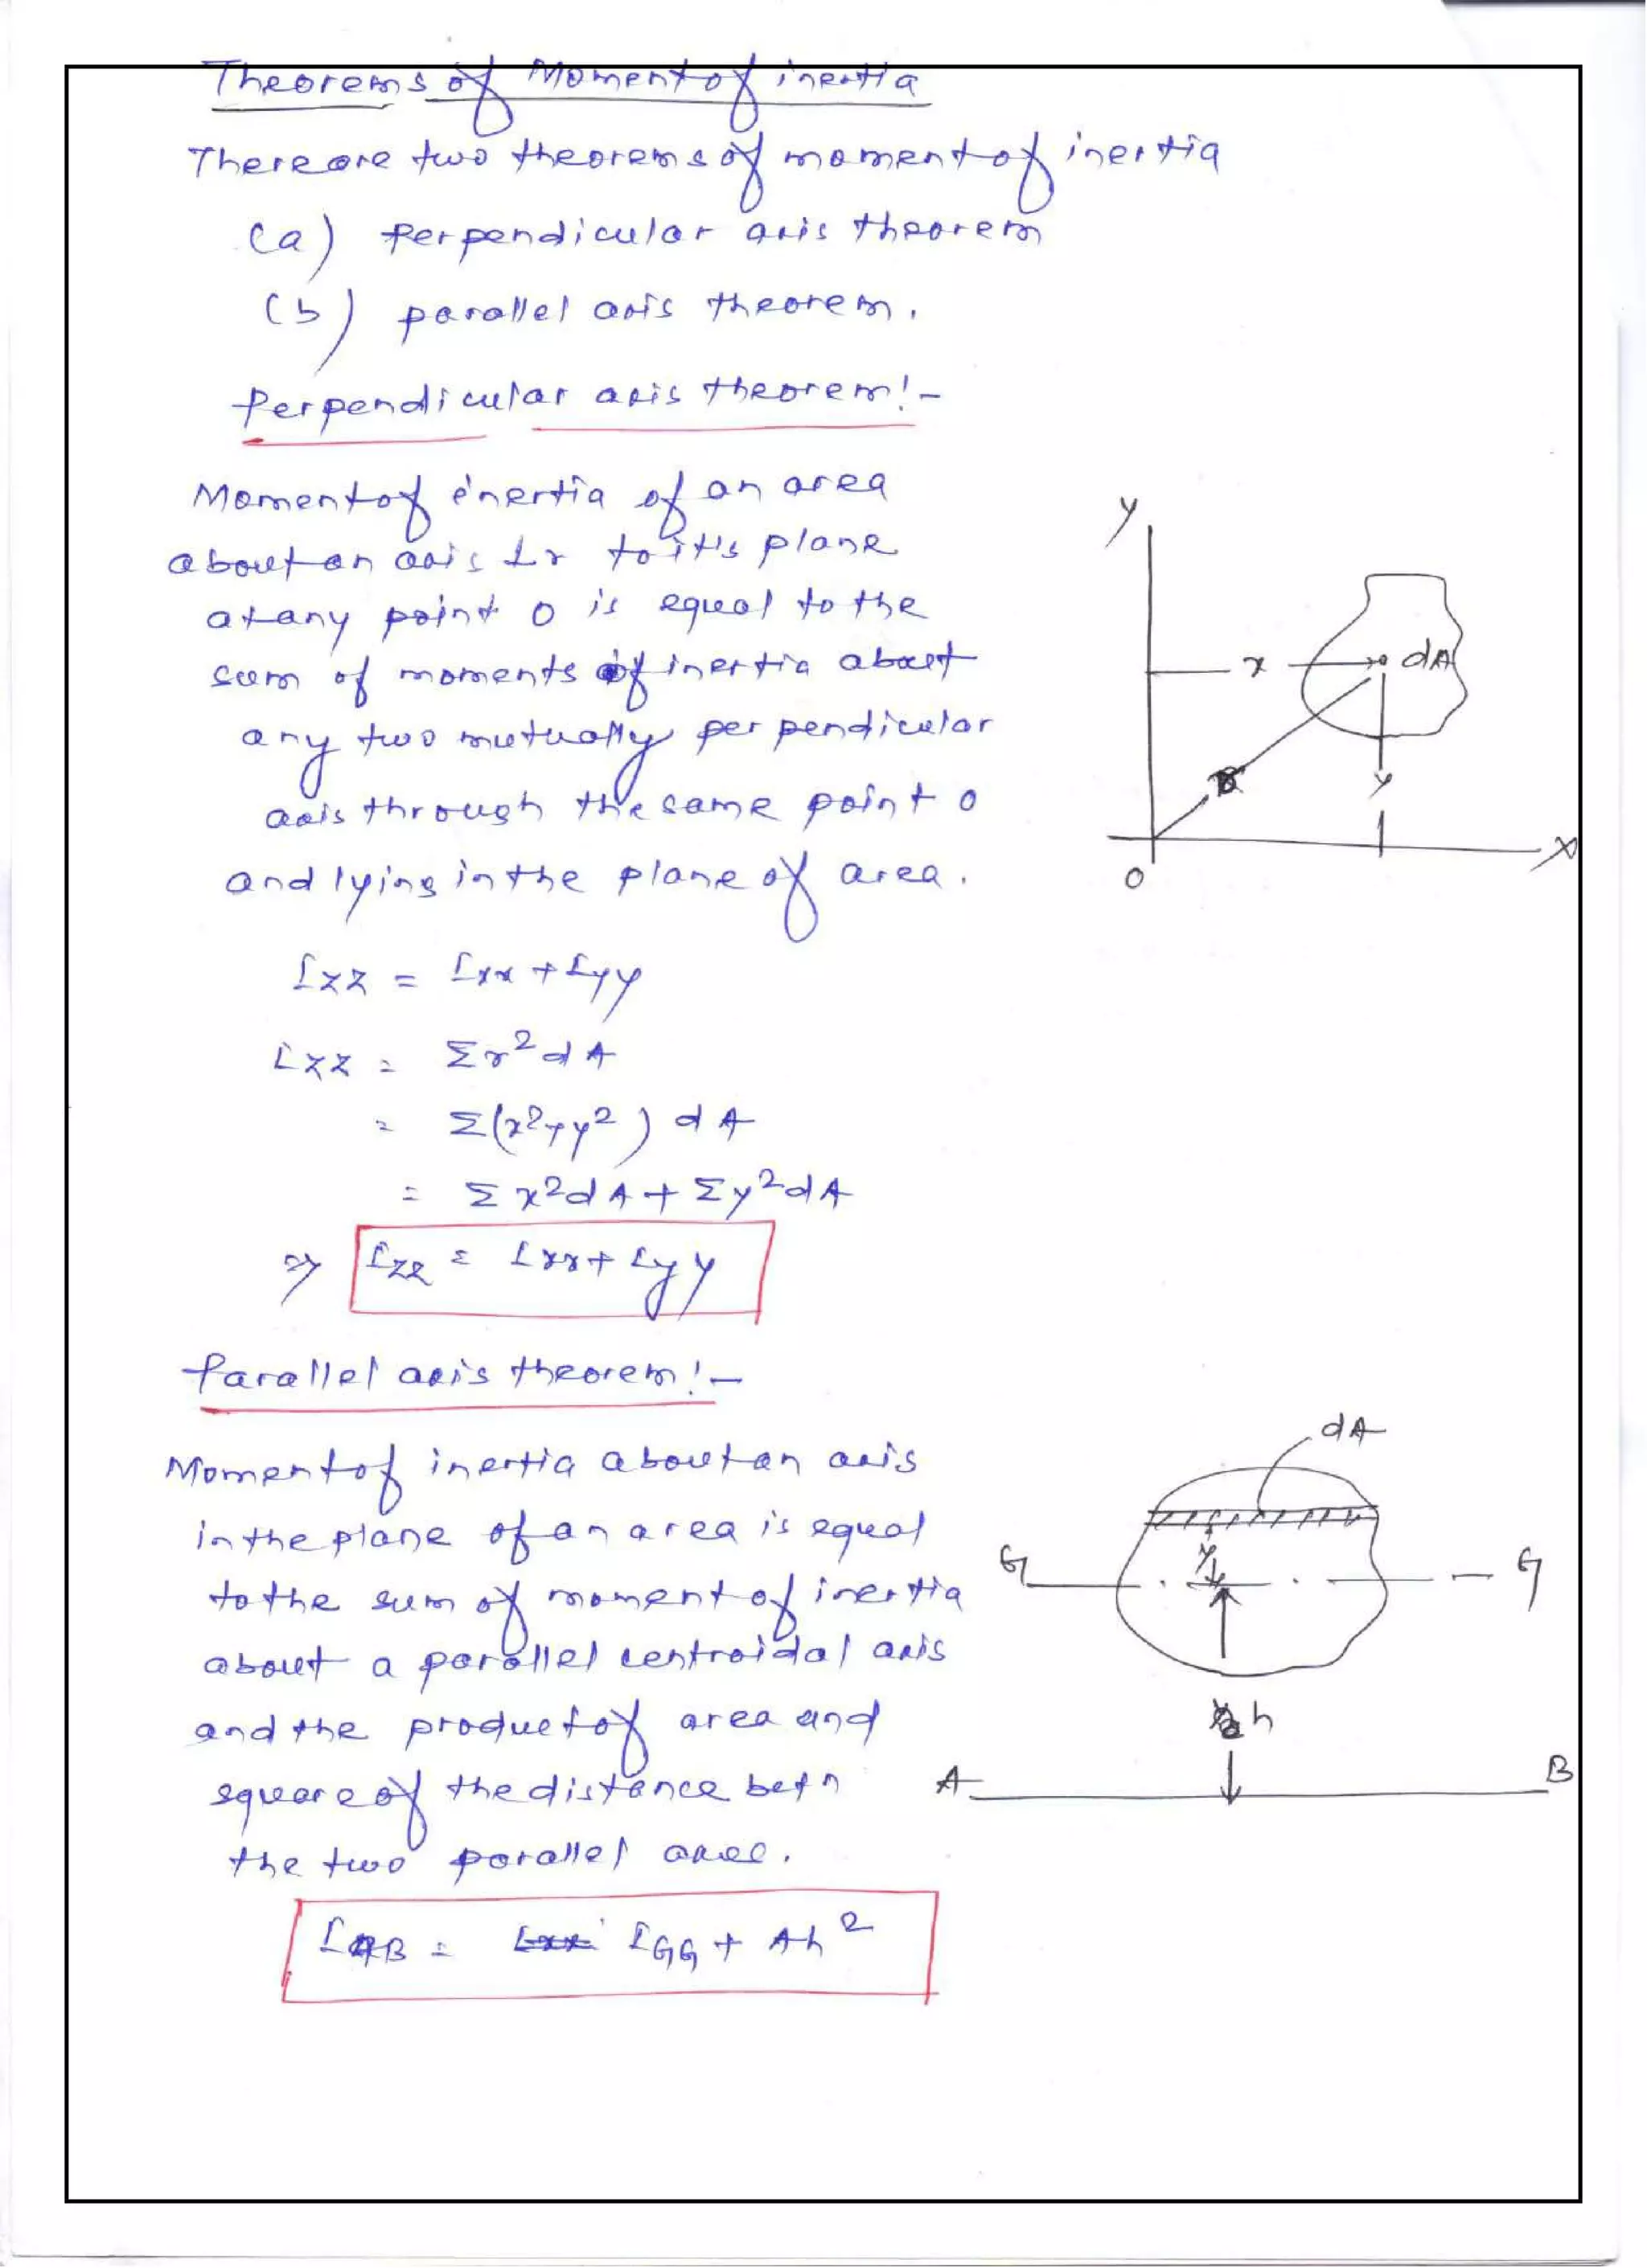 Theorems of Moment of inertia
There are two theorems of moment of inertia
(a) Perpendicular axis theorem
(b) parallel axis theorem.
Perpendicular axis theorem:-
Moment of inertia of an area
about an axis ⊥r to it's plane
at any point O is equal to the
sum of moments of inertia about
any two mutually perpendicular
axis through the same point O
and lying in the plane of area.
Y
x
dA
y
X
O
Izz = Ixx + Iyy
Izz = Σr²dA
= Σ(x²+y²) dA
= Σx²dA + Σy²dA
⇒ Izz = Ixx + Iyy
Parallel axis theorem:-
Moment of inertia about an axis
in the plane of an area is equal
to the sum of moment of inertia
about a parallel centroidal axis
and the product of area and
square of the distance betn
the two parallel axes.
IAB = IGG + Ah²
dA
G
y
G
h
A
B